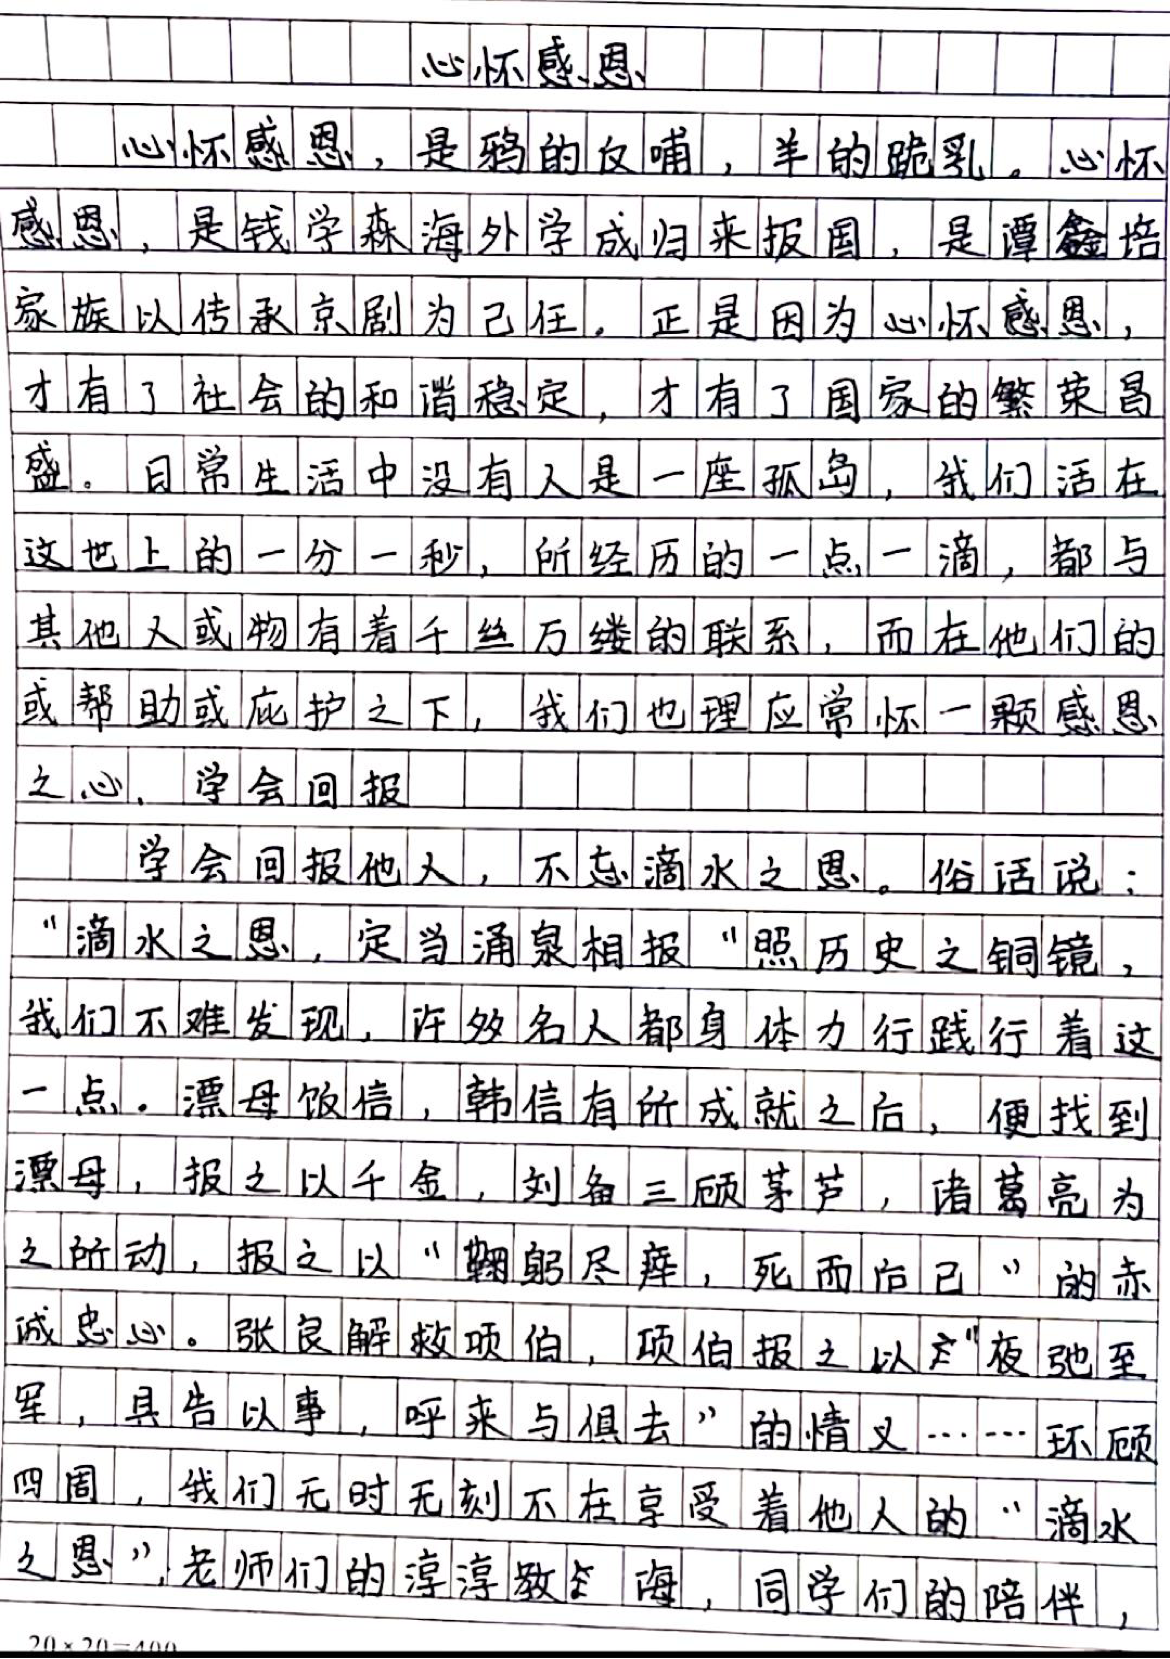 心怀感恩
心怀感恩，是鸦的反哺，羊的跪乳。心怀
感恩，是钱学森海外学成归来报国，是谭鑫培
家族以传承京剧为己任。正是因为心怀感恩，
才有了社会的和谐稳定，才有了国家的繁荣昌
盛。日常生活中没有人是一座孤岛，我们活在
这世上的一分一秒，所经历的一点一滴，都与
其他人或物有着千丝万缕的联系，而在他们的
或帮助或庇护之下，我们也理应常怀一颗感恩
之心、学会回报
学会回报他人，不忘滴水之恩。俗话说：
“滴水之恩，定当涌泉相报“照历史之铜镜，
我们不难发现，许多名人都身体力行践行着这
一点。漂母饭信，韩信有所成就之后，便找到
漂母，报之以千金，刘备三顾茅芦，诸葛亮为
之所动，报之以“鞠躬尽瘁，死而后已”的赤
诚忠心。张良解救项伯，项伯报之以“夜弛至
军，具告以事，呼来与俱去”的情义……环顾
四周，我们无时无刻不在享受着他人的“滴水
之恩”，老师们的淳淳教诲，同学们的陪伴，
20×20=400